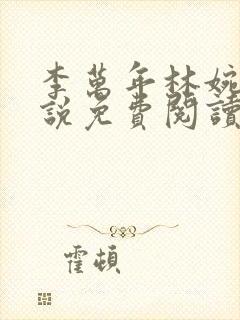 李萬年林婉
說免費閱讀
霍頓